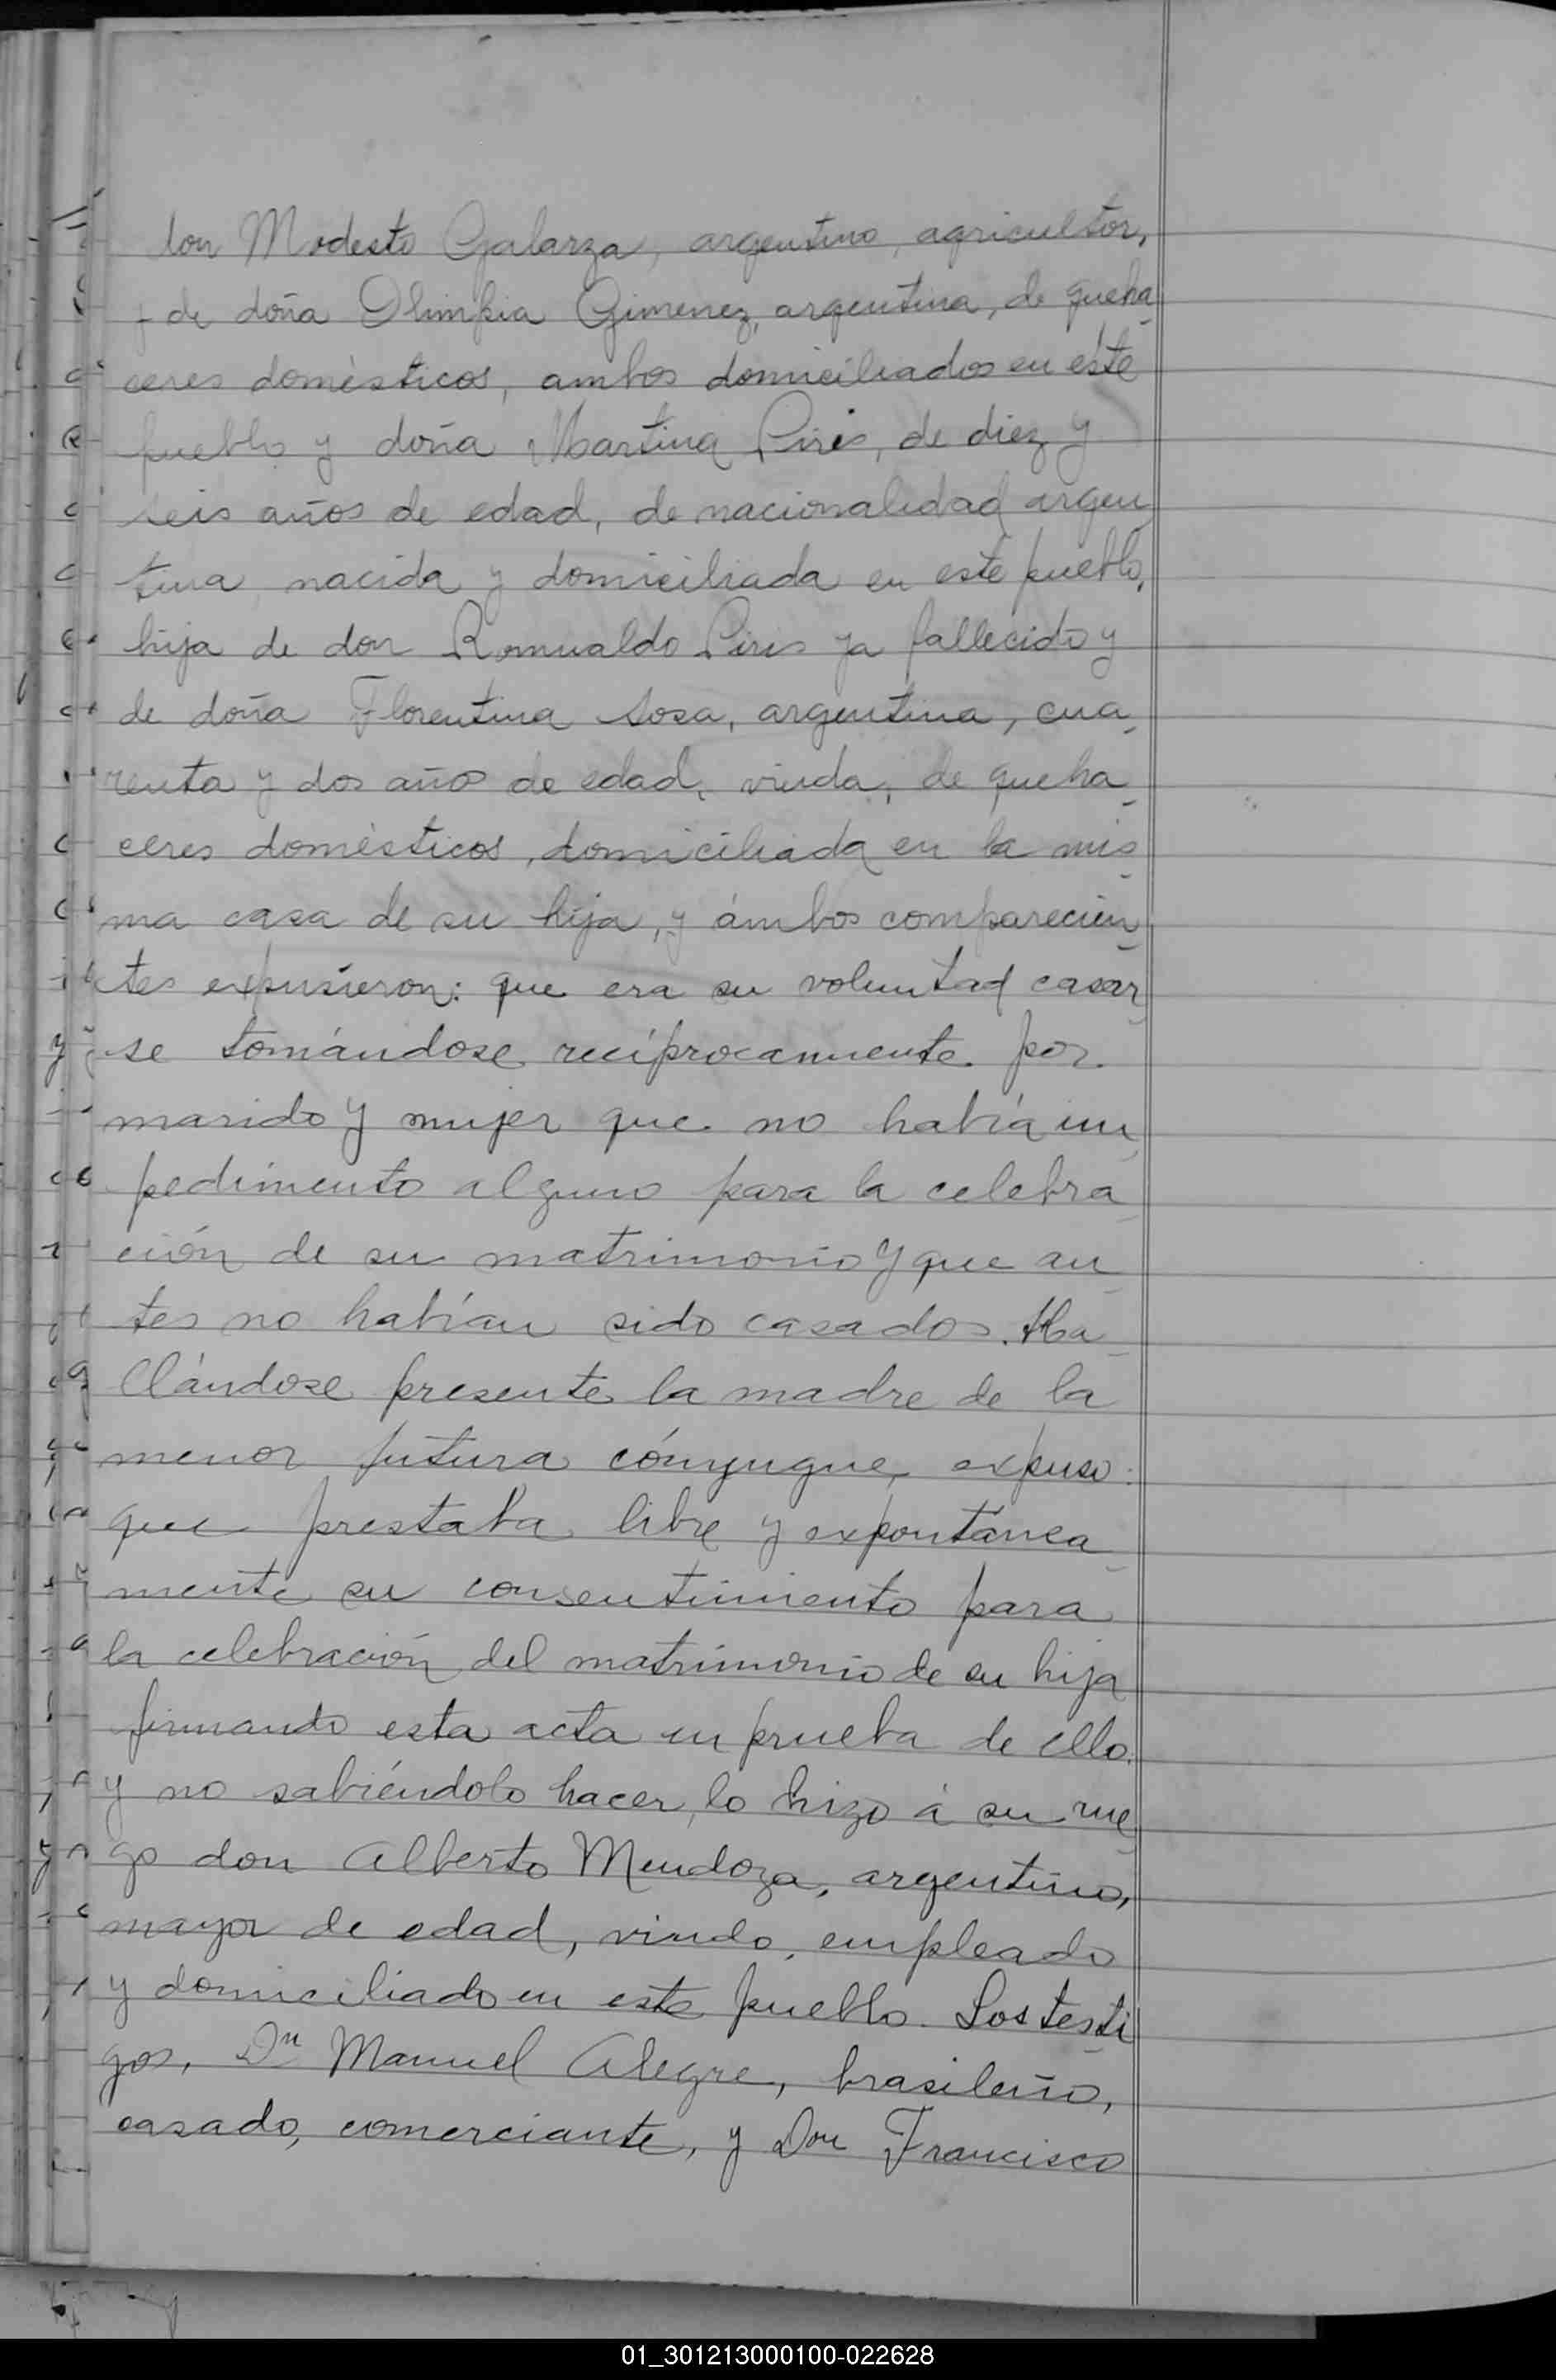 don Modesto Galarza, argentino, agricultor,
y de doña Olimpia Gimenez, argentina, de queha
ceres domésticos, ambos domiciliados en este
pueblo y doña Martina Piris, de diez y
seis años de edad, de nacionalidad argen
tina nacida y domiciliada en este pueblo,
hija de don Romualdo Piris ya fallecido y
de doña Florentina Sosa, argentina, cua-
renta y dos años de edad, viuda, de queha-
ceres domésticos, domiciliada en la mis-
ma casa de su hija, y ámbos comparecien-
tes expusieron: que era su voluntad casar-
se tomándose recíprocamente por
marido y mujer que no había im-
pedimento alguno para la celebra-
ción de su matrimonio y que an-
tes no habían sido casados. Ha-
llándose presente la madre de la
menor futura cónyugue, expuso:
que prestaba libre y expontánea-
mente su consentimiento para
la celebración del matrimonio de su hija
firmando esta acta en prueba de ello.
y no sabiéndolo hacer, lo hizo á su rue-
go don Alberto Mendoza, argentino,
mayor de edad, viudo, empleado
y domiciliado en este pueblo. Los testi-
gos, Dn Manuel Alegre, brasileño,
casado, comerciante, y Don Francisco
01_301213000100-022628